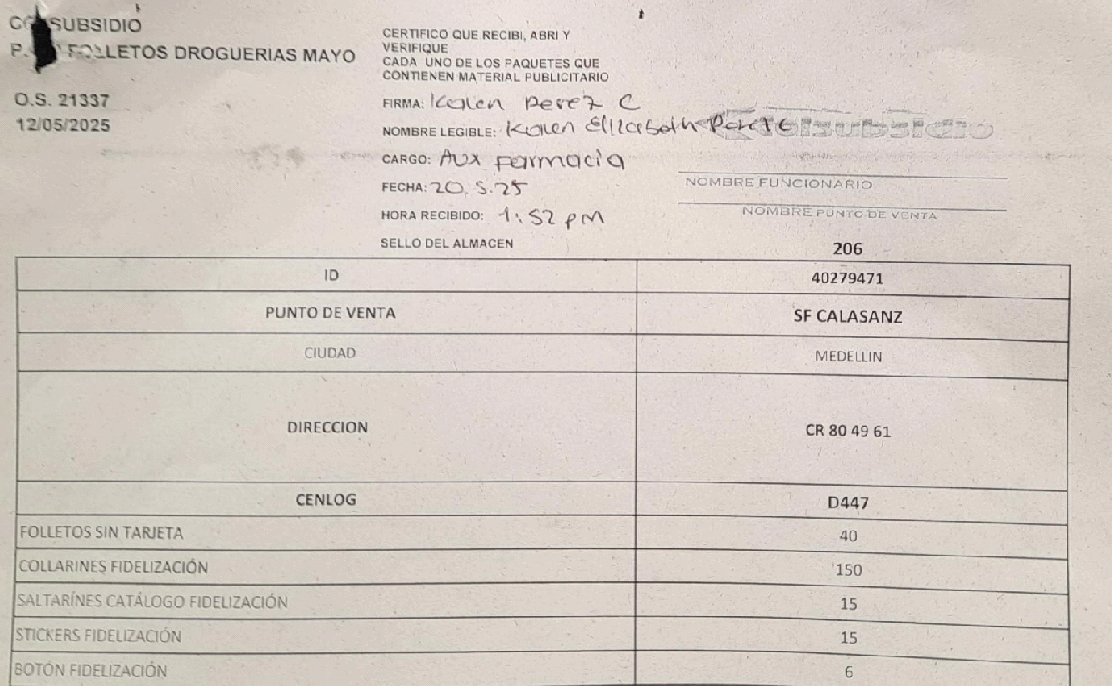 SUBSIDIO
FOLLETOS DROGUERIAS MAYO
O.S. 21337
12/05/2025
CERTIFICO QUE RECIBI, ABRI Y
VERIFIQUE
CADA UNO DE LOS PAQUETES QUE
CONTIENEN MATERIAL PUBLICITARIO
FIRMA: Karen Perez C
NOMBRE LEGIBLE: Karen Elizabeth
CARGO: Aux Farmacia
FECHA: 20.5.25
HORA RECIBIDO: 1:52 pm
SELLO DEL ALMACEN
Colsubsidio
NOMBRE FUNCIONARIO
NOMBRE PUNTO DE VENTA
206
ID 40279471
PUNTO DE VENTA SF CALASANZ
CIUDAD MEDELLIN
DIRECCION CR 80 49 61
CENLOG D447
FOLLETOS SIN TARJETA 40
COLLARINES FIDELIZACIÓN 150
SALTARÍNES CATÁLOGO FIDELIZACIÓN 15
STICKERS FIDELIZACIÓN 15
BOTÓN FIDELIZACIÓN 6